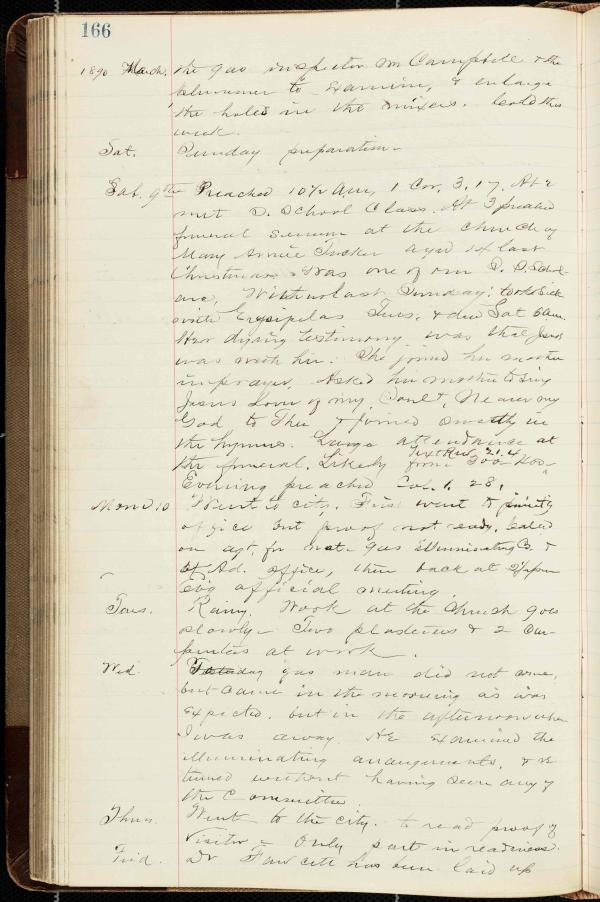 166
1890 March. the gas inspector Mr Campbell & the
plummer to examine, & enlarge
the holes in the mixers. Cold this
week.
Sat. Sunday preparation -
Sab. 9th Preached 10½ A.M., 1 Cor. 3.17. At 2
met S. School Class. At 3 preached
funeral sermon at the church of
Mary Annie Tucker aged 14 last
Christmas. Was one of our S. School
are, With us last Sunday: took sick
with Erysipelas Tues. & died Sat 6 am.
Her dying testimony was that Jesus
was with her. She joined her mother
in prayer, Asked her mother to sing
Jesus Lover of my Soul &, Nearer my
God to Thee & joined sweetly in
the hymns. Large attendance at
the funeral, Likely from 300 - 400 -
Text Rev 21.4
Evening preached Col. 1. 28.
Mond 10 Went to city. First went to
office but proof not ready, Called
on agt. for nat. gas illuminating Co. &
Ad. office, then back at
evg official meeting.
Tues. Rainy. Work at the Church goes
slowly - Two plasterers & 2 car-
penters at work.
Wed. gas man did not come,
but came in the morning as was
expected. but in the afternoon when
I was away. He examined the
illuminating arrangements, & re
turned without having seen any of
the Committee.
Thurs. Went to the city. to read proof of
Visitor - Only part in readiness.
Frid. Dr Fawcett has been laid up